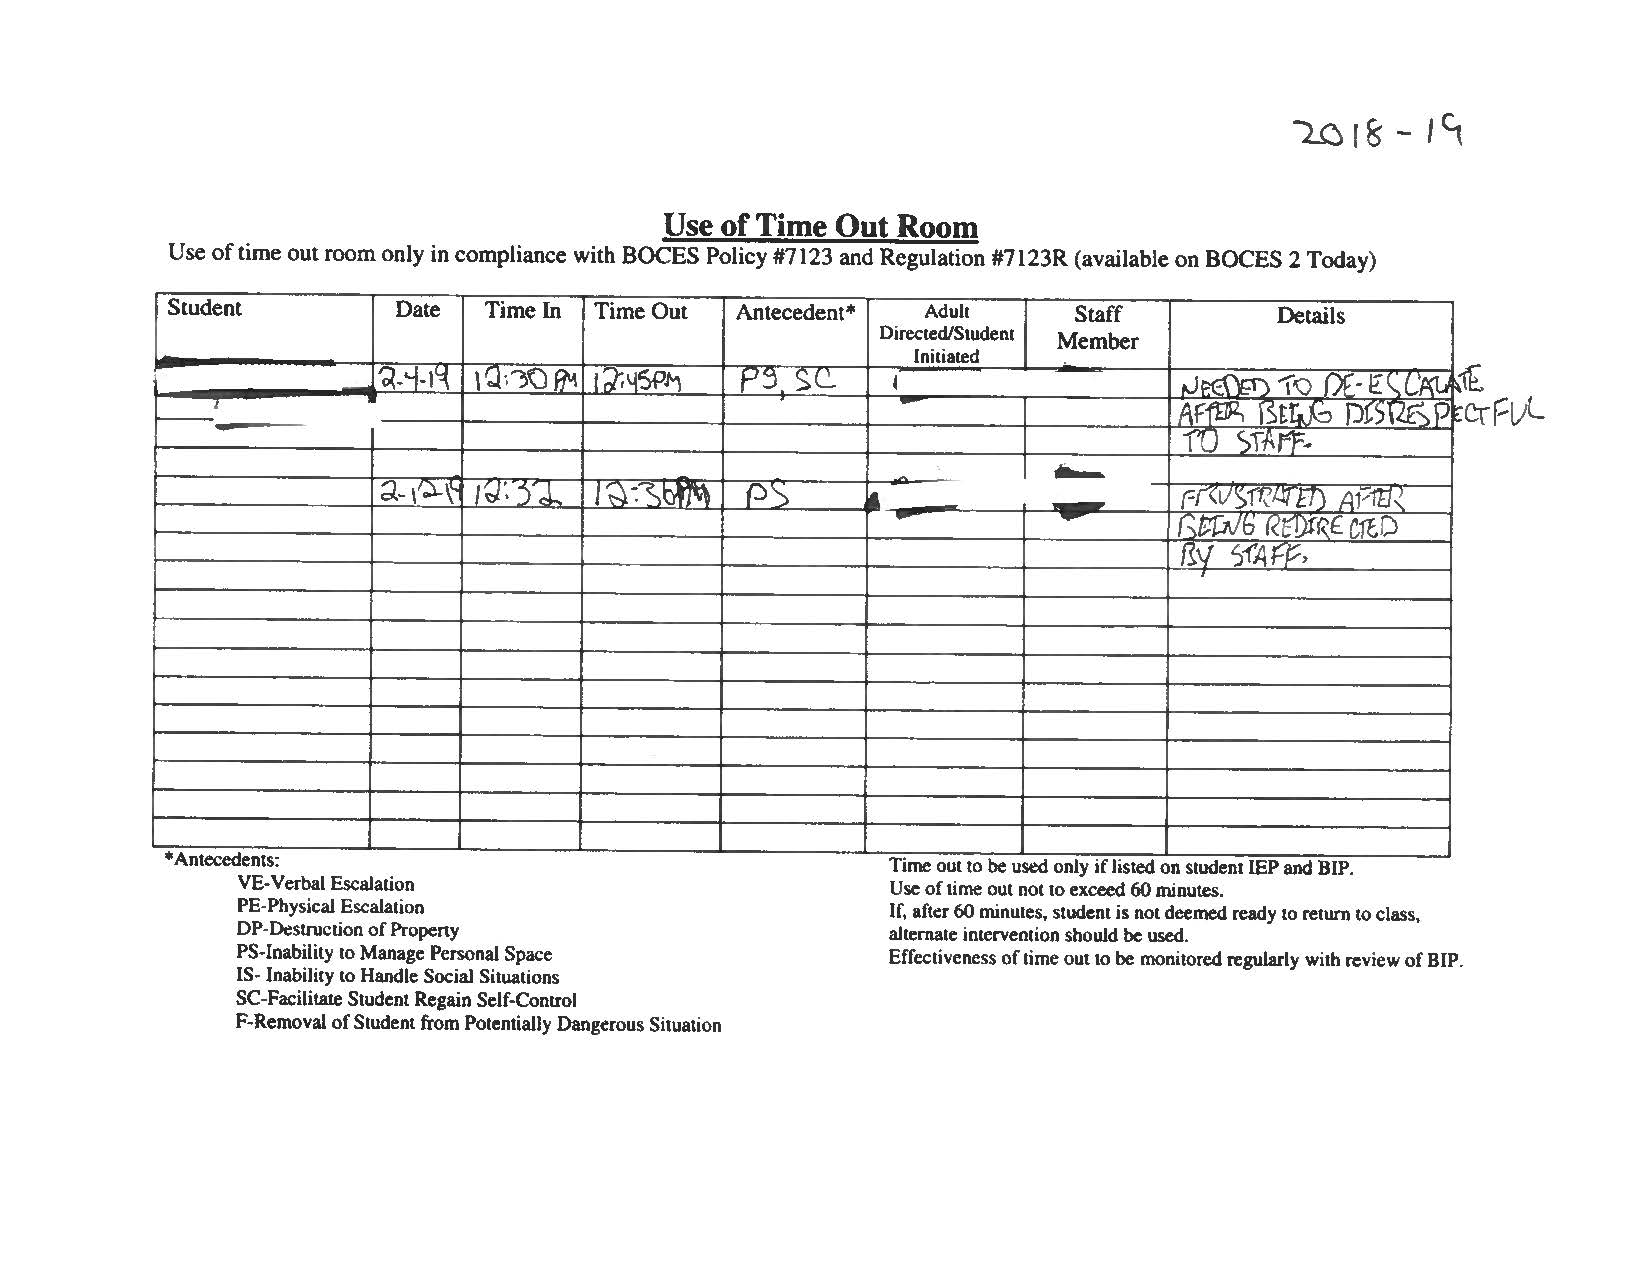 2018-19
Use of Time Out Room
Use of time out room only in compliance with BOCES Policy #7123 and Regulation #7123R (available on BOCES 2 Today)
Student Date Time In Time Out Antecedent* Adult Directed/Student Initiated Staff Member Details
2-4-19 12:30 PM 12:45PM PS, SC NEEDED TO DE-ESCALATE
AFTER BEING DISRESPECTFUL
TO STAFF.
2-12-19 12:32 12:36PM PS FRUSTRATED AFTER
BEING REDIRECTED
BY STAFF.
*Antecedents:
VE-Verbal Escalation
PE-Physical Escalation
DP-Destruction of Property
PS-Inability to Manage Personal Space
IS- Inability to Handle Social Situations
SC-Facilitate Student Regain Self-Control
F-Removal of Student from Potentially Dangerous Situation
Time out to be used only if listed on student IEP and BIP.
Use of time out not to exceed 60 minutes.
If, after 60 minutes, student is not deemed ready to return to class,
alternate intervention should be used.
Effectiveness of time out to be monitored regularly with review of BIP.